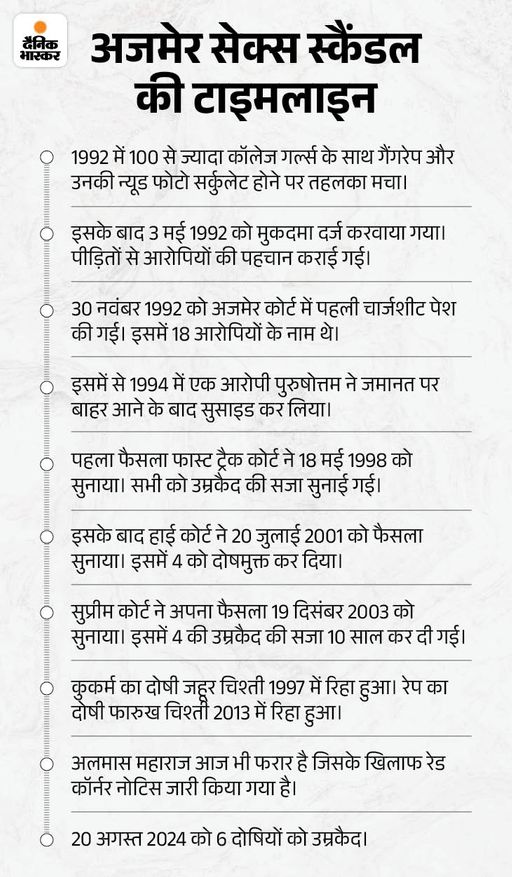 दैनिक
भास्कर
अजमेर सेक्स स्कैंडल
की टाइमलाइन
1992 में 100 से ज्यादा कॉलेज गर्ल्स के साथ गैंगरेप और
उनकी न्यूड फोटो सर्कुलेट होने पर तहलका मचा।
इसके बाद 3 मई 1992 को मुकदमा दर्ज करवाया गया।
पीड़ितों से आरोपियों की पहचान कराई गई।
30 नवंबर 1992 को अजमेर कोर्ट में पहली चार्जशीट पेश
की गई। इसमें 18 आरोपियों के नाम थे।
इसमें से 1994 में एक आरोपी पुरुषोत्तम ने जमानत पर
बाहर आने के बाद सुसाइड कर लिया।
पहला फैसला फास्ट ट्रैक कोर्ट ने 18 मई 1998 को
सुनाया। सभी को उम्रकैद की सजा सुनाई गई।
इसके बाद हाई कोर्ट ने 20 जुलाई 2001 को फैसला
सुनाया। इसमें 4 को दोषमुक्त कर दिया।
सुप्रीम कोर्ट ने अपना फैसला 19 दिसंबर 2003 को
सुनाया। इसमें 4 की उम्रकैद की सजा 10 साल कर दी गई।
कुकर्म का दोषी जहूर चिश्ती 1997 में रिहा हुआ। रेप का
दोषी फारुख चिश्ती 2013 में रिहा हुआ।
अलमास महाराज आज भी फरार है जिसके खिलाफ रेड
कॉर्नर नोटिस जारी किया गया है।
20 अगस्त 2024 को 6 दोषियों को उम्रकैद।